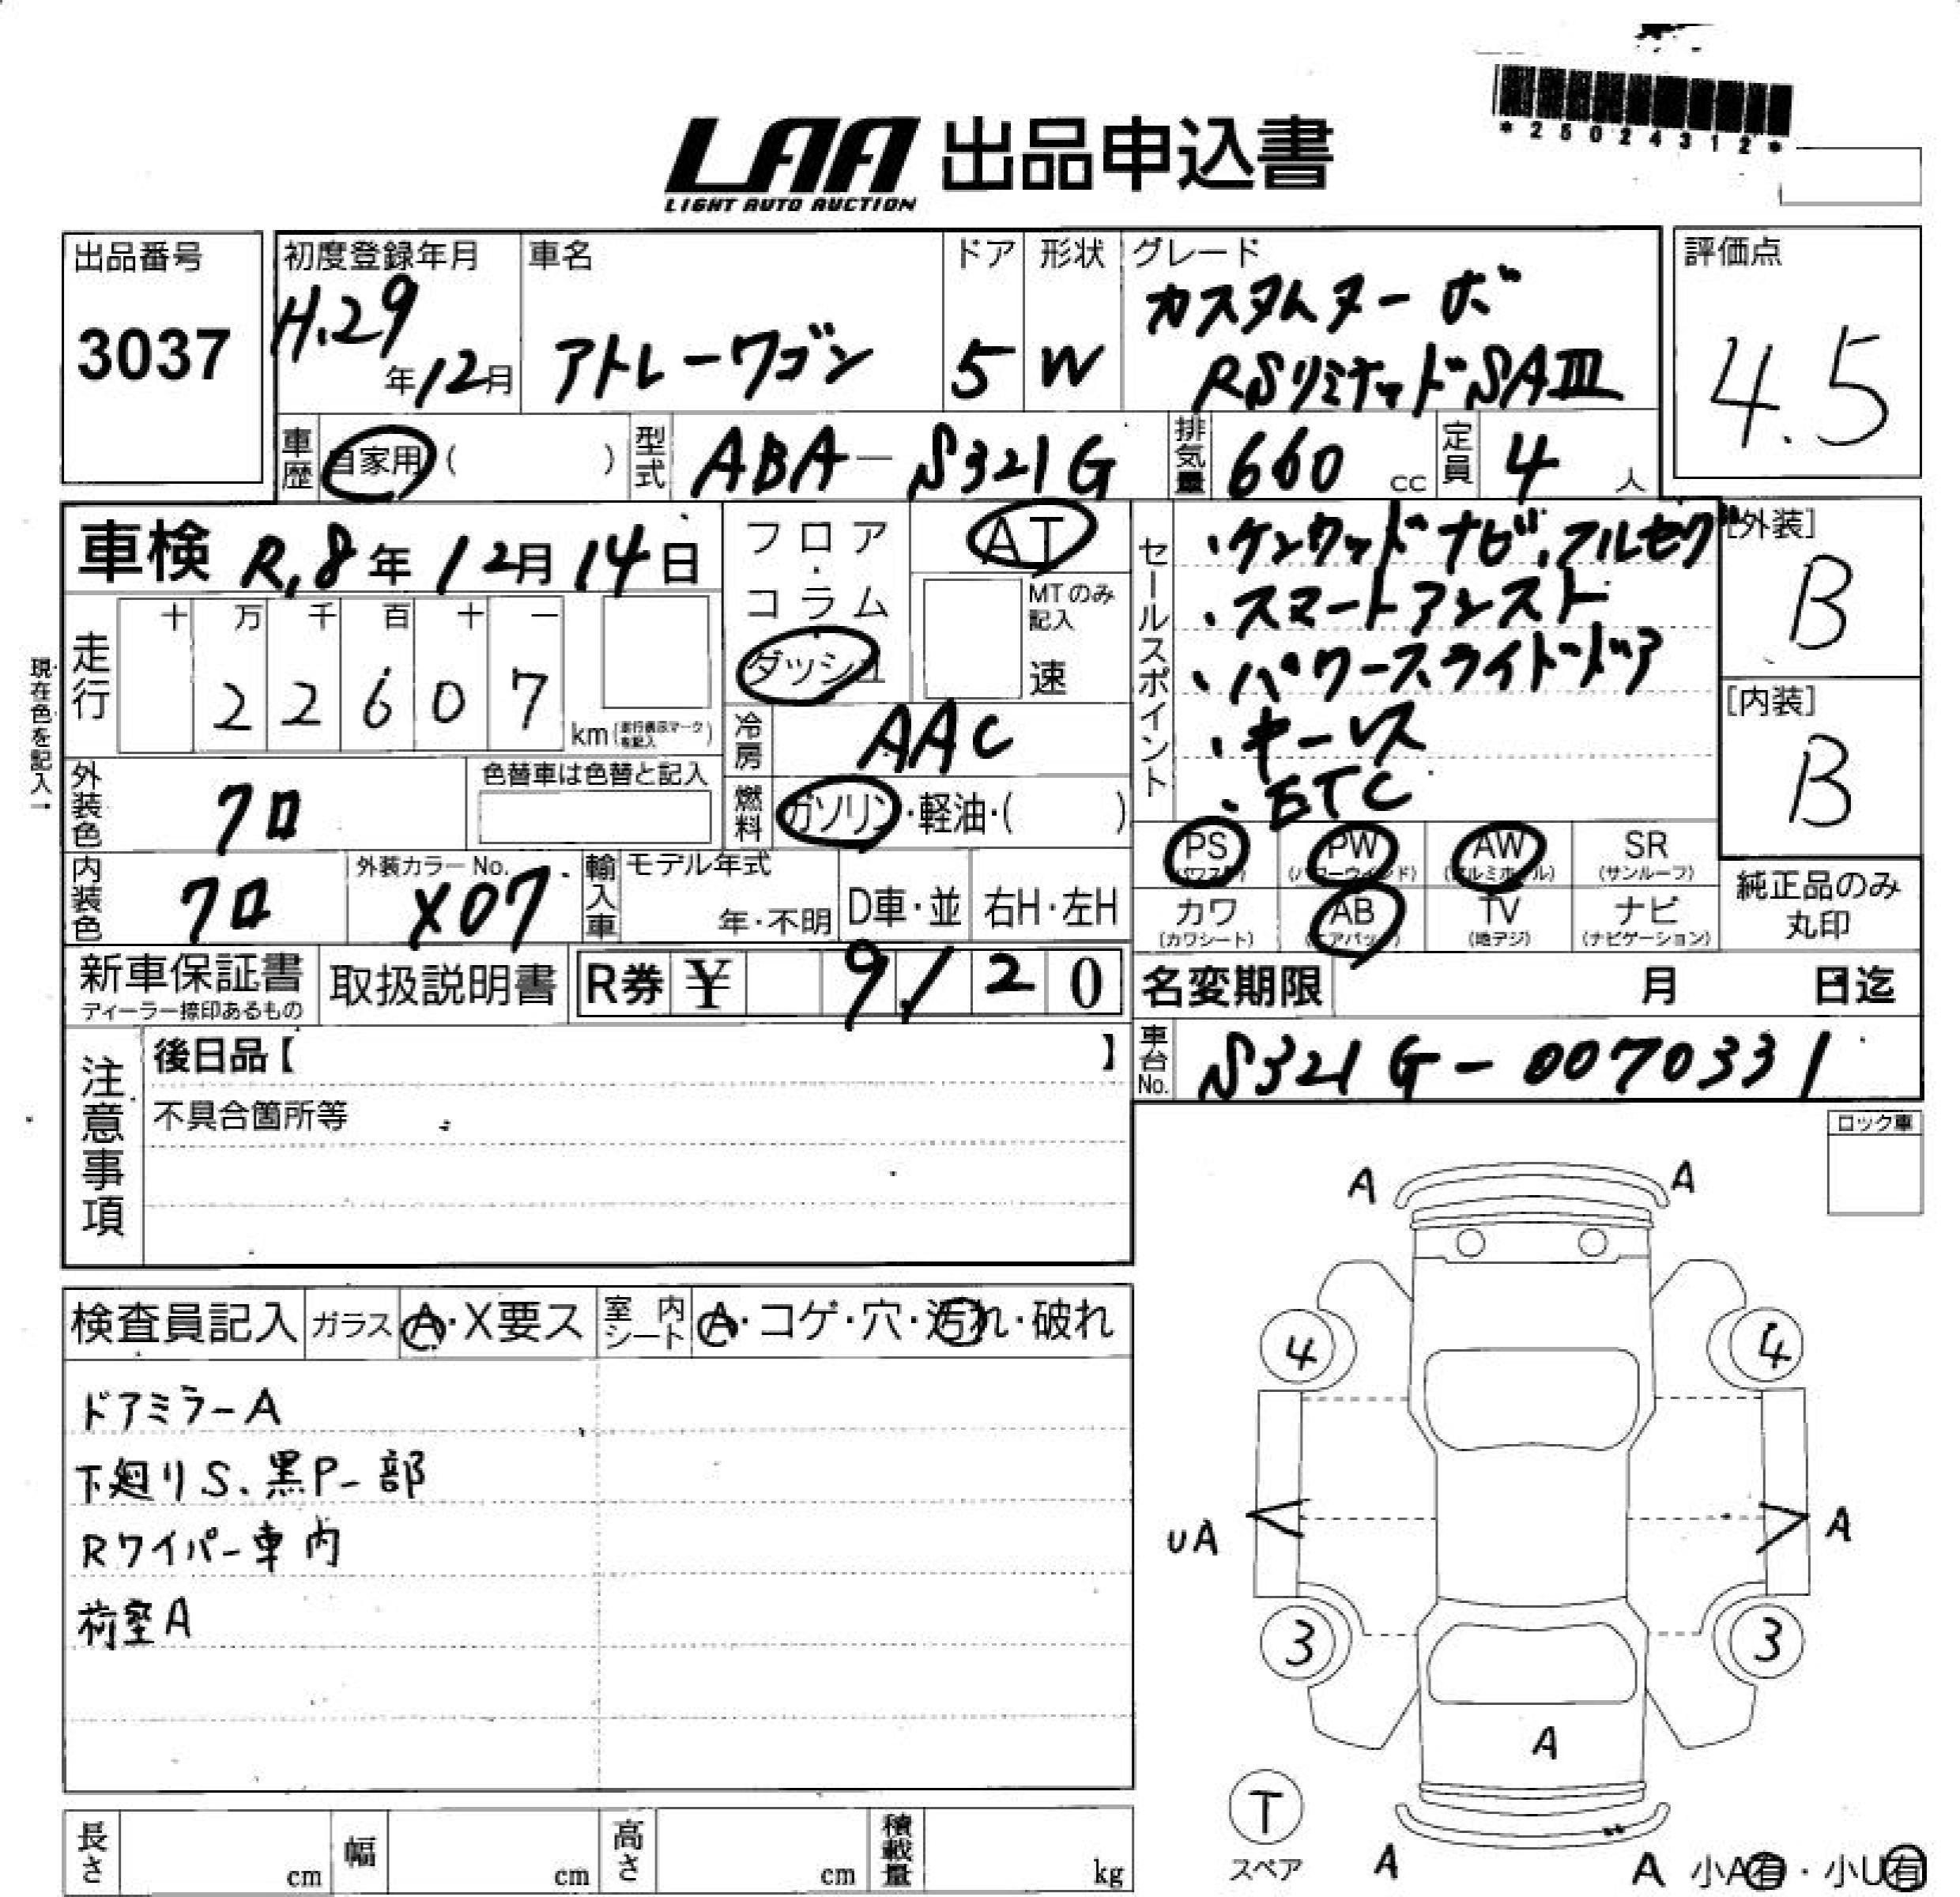 *25024312*
LAA 出品申込書
LIGHT AUTO AUCTION
出品番号
3037
初度登録年月
H.29年12月
車名
アトレーワゴン
ドア
5
形状
W
グレード
カスタムターボ
RSリミテッドSAIII
評価点
4.5
車歴 自家用 ( )
型式 ABA-S321G
排気量 660 cc
定員 4 人
車検 R.8年12月14日
フロア・コラム
ダッシュ
AT
MTのみ記入
速
セールスポイント
・ケンウッドナビ、フルセグ
・スマートアシスト
・パワースライドドア
・キーレス
・ETC
[外装]
B
[内装]
B
現在色を記入→
走行
十 万 千 百 十 一
2 2 6 0 7
km (走行表示マークを記入)
冷房 AAC
燃料 ガソリン・軽油・( )
外装色 クロ
色替車は色替と記入
内装色 クロ
外装カラーNo.
X07
輸入車
モデル年式
年・不明
D車・並
右H・左H
PS (パワステ)
PW (パワーウインド)
AW (アルミホイル)
SR (サンルーフ)
カワ (カワシート)
AB (エアバック)
TV (地デジ)
ナビ (ナビゲーション)
純正品のみ
丸印
新車保証書
ディーラー捺印あるもの
取扱説明書
R券 ¥ 9,120
名変期限 月 日迄
車台No. S321G-0070331
注意事項
後日品【 】
不具合箇所等
ロック車
検査員記入
ガラス A・X要ス
室内シート A・コゲ・穴・汚れ・破れ
ドアミラーA
下廻りS、黒P一部
Rワイパー車内
荷室A
A A
4 4
UA A
3 3
A
T
スペア
A A
小A有・小U有
長さ cm
幅 cm
高さ cm
積載量 kg